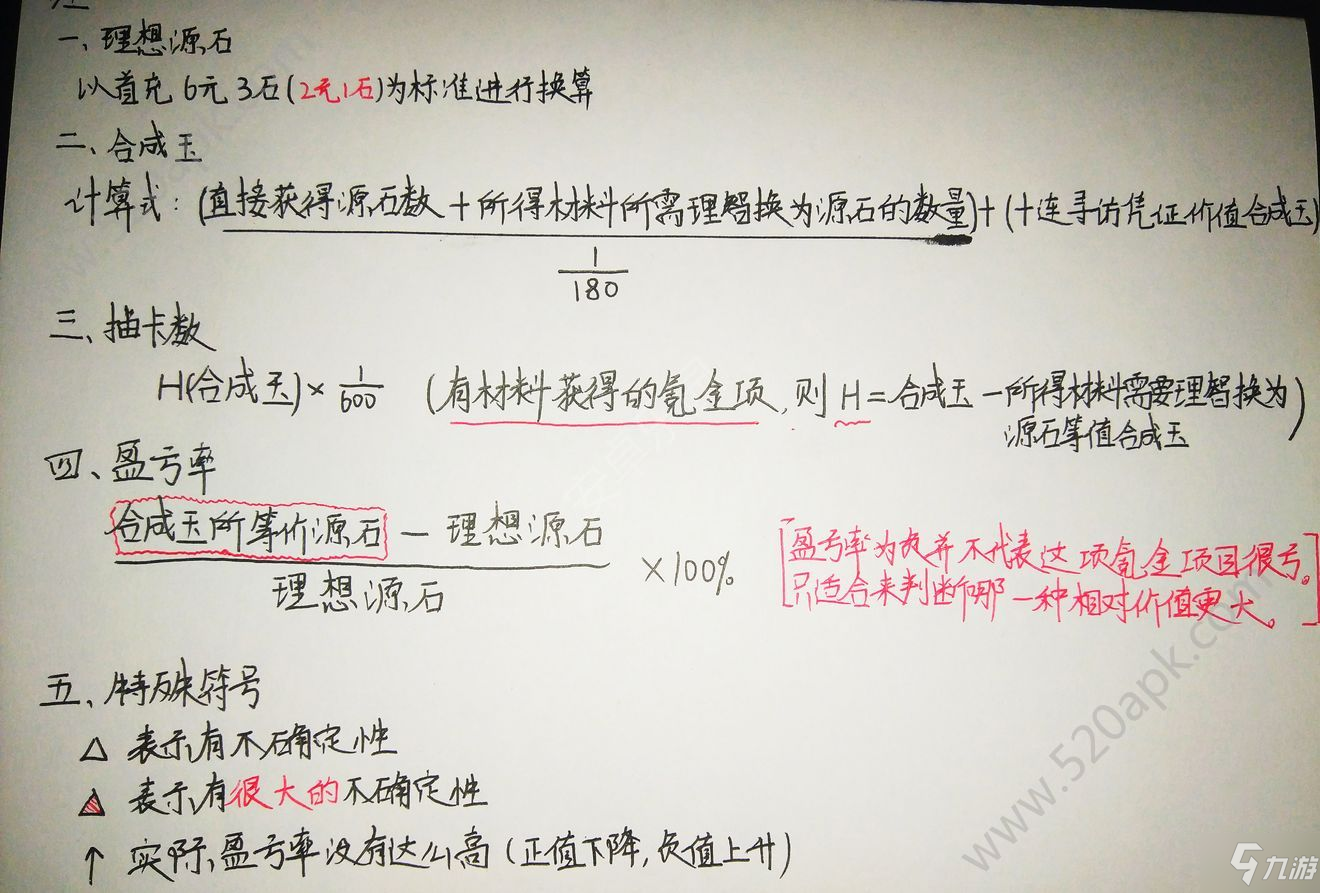 一、理想源石
以首充 6元 3石(2元1石)为标准进行换算
二、合成玉
计算式：(直接获得源石数＋所得材料所需理智换为源石的数量)＋(十连寻访凭证价值合成玉)
1
180
三、抽卡数
H(合成玉)× 1/600 (有材料获得的氪金项，则 H＝合成玉－所得材料需要理智换为
源石等值合成玉)
四、盈亏率
合成玉所等价源石 － 理想源石
理想源石
×100%
[盈亏率为负并不代表这项氪金项目很亏。
只适合来判断哪一种相对价值更大。]
五、特殊符号
△ 表示有不确定性
▲ 表示有很大的不确定性
↑ 实际盈亏率没有达么高(正值下降,负值上升)
www.520apk.com
九游